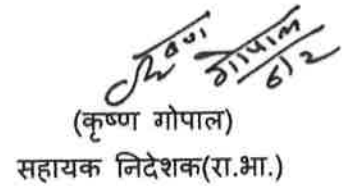 कृष्ण
गोपाल
6/2
(कृष्ण गोपाल)
सहायक निदेशक(रा.भा.)